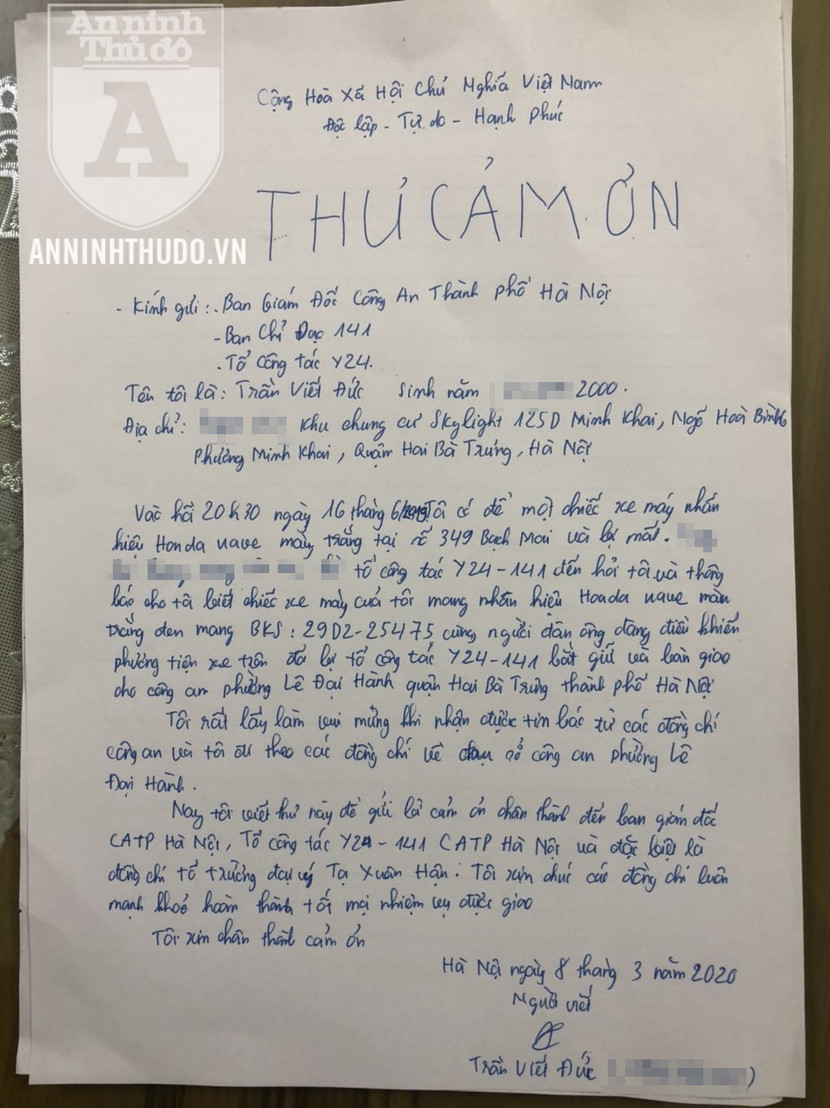 An ninh
Thủ đô
A
ANNINHTHUDO.VN
Cộng Hoà Xã Hội Chủ Nghĩa Việt Nam
Độc lập - Tự do - Hạnh Phúc
THƯ CẢM ƠN
- Kính gửi: - Ban Giám Đốc Công An Thành Phố Hà Nội
- Ban Chỉ Đạo 141
- Tổ Công tác Y24.
Tên tôi là: Trần Viết Đức Sinh năm 2000.
Địa chỉ: Khu chung cư Skylight 125D Minh Khai, Ngõ Hoà Bình 6
Phường Minh Khai, Quận Hai Bà Trưng, Hà Nội
Vào hồi 20h30 ngày 16 tháng 6/2019 Tôi có để một chiếc xe máy nhãn
hiệu Honda wave màu trắng tại số 349 Bạch Mai và bị mất.
tổ công tác Y24-141 đến hỏi tôi và thông
báo cho tôi biết chiếc xe máy của tôi mang nhãn hiệu Honda wave màu
trắng đen mang BKS: 29D2-25475 cùng người đàn ông đang điều khiển
phương tiện xe trên đã bị tổ công tác Y24-141 bắt giữ và bàn giao
cho công an phường Lê Đại Hành quận Hai Bà Trưng thành phố Hà Nội
Tôi rất lấy làm vui mừng khi nhận được tin báo từ các đồng chí
công an và tôi đi theo các đồng chí về trụ sở công an phường Lê
Đại Hành.
Nay tôi viết thư này để gửi lời cảm ơn chân thành đến ban giám đốc
CATP Hà Nội, Tổ công tác Y24-141 CATP Hà Nội và đặc biệt là
đồng chí tổ trưởng đại uý Tạ Xuân Hận. Tôi xin chúc các đồng chí luôn
mạnh khoẻ hoàn thành tốt mọi nhiệm vụ được giao
Tôi xin chân thành cảm ơn
Hà Nội ngày 8 tháng 3 năm 2020
Người viết
Trần Viết Đức